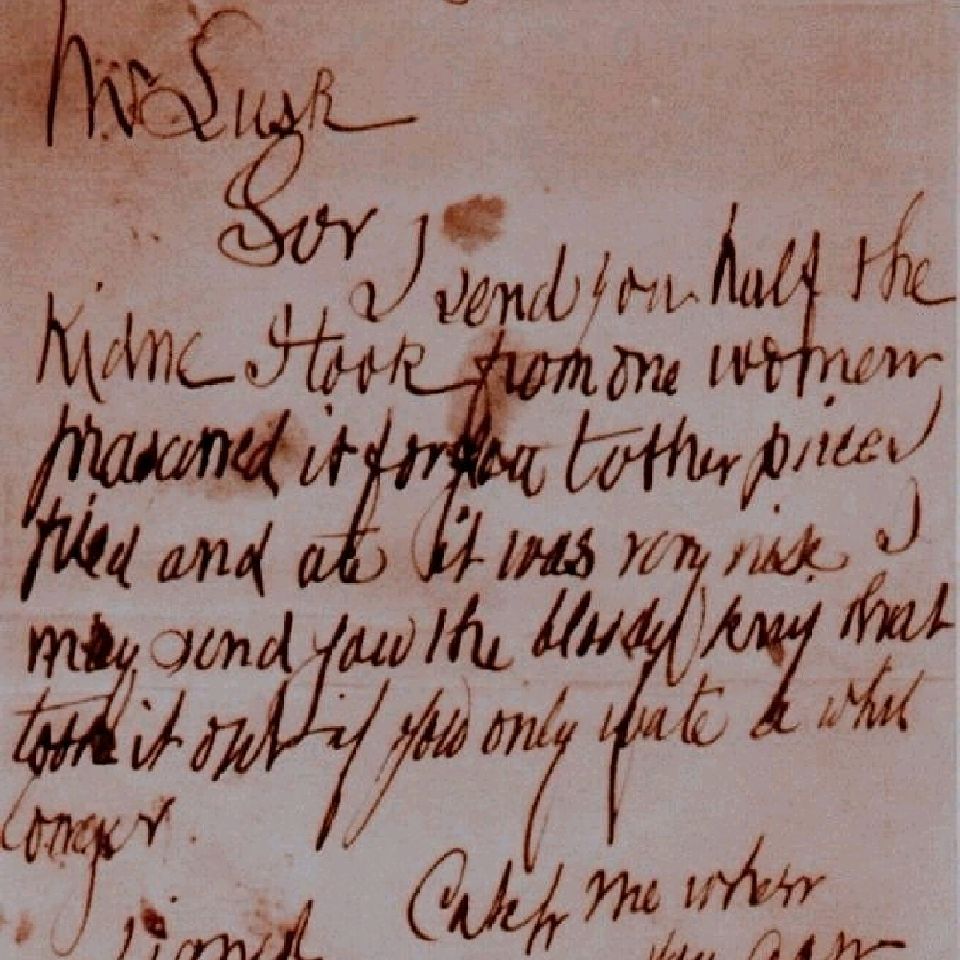 Mr Lusk
Sor
I send you half the
Kidne I took from one women
prasarved it for you tother piece I
fried and ate it was very nise I
may send you the bloody knif that
took it out if you only wate a whil
longer.
Catch me when
signed
you can